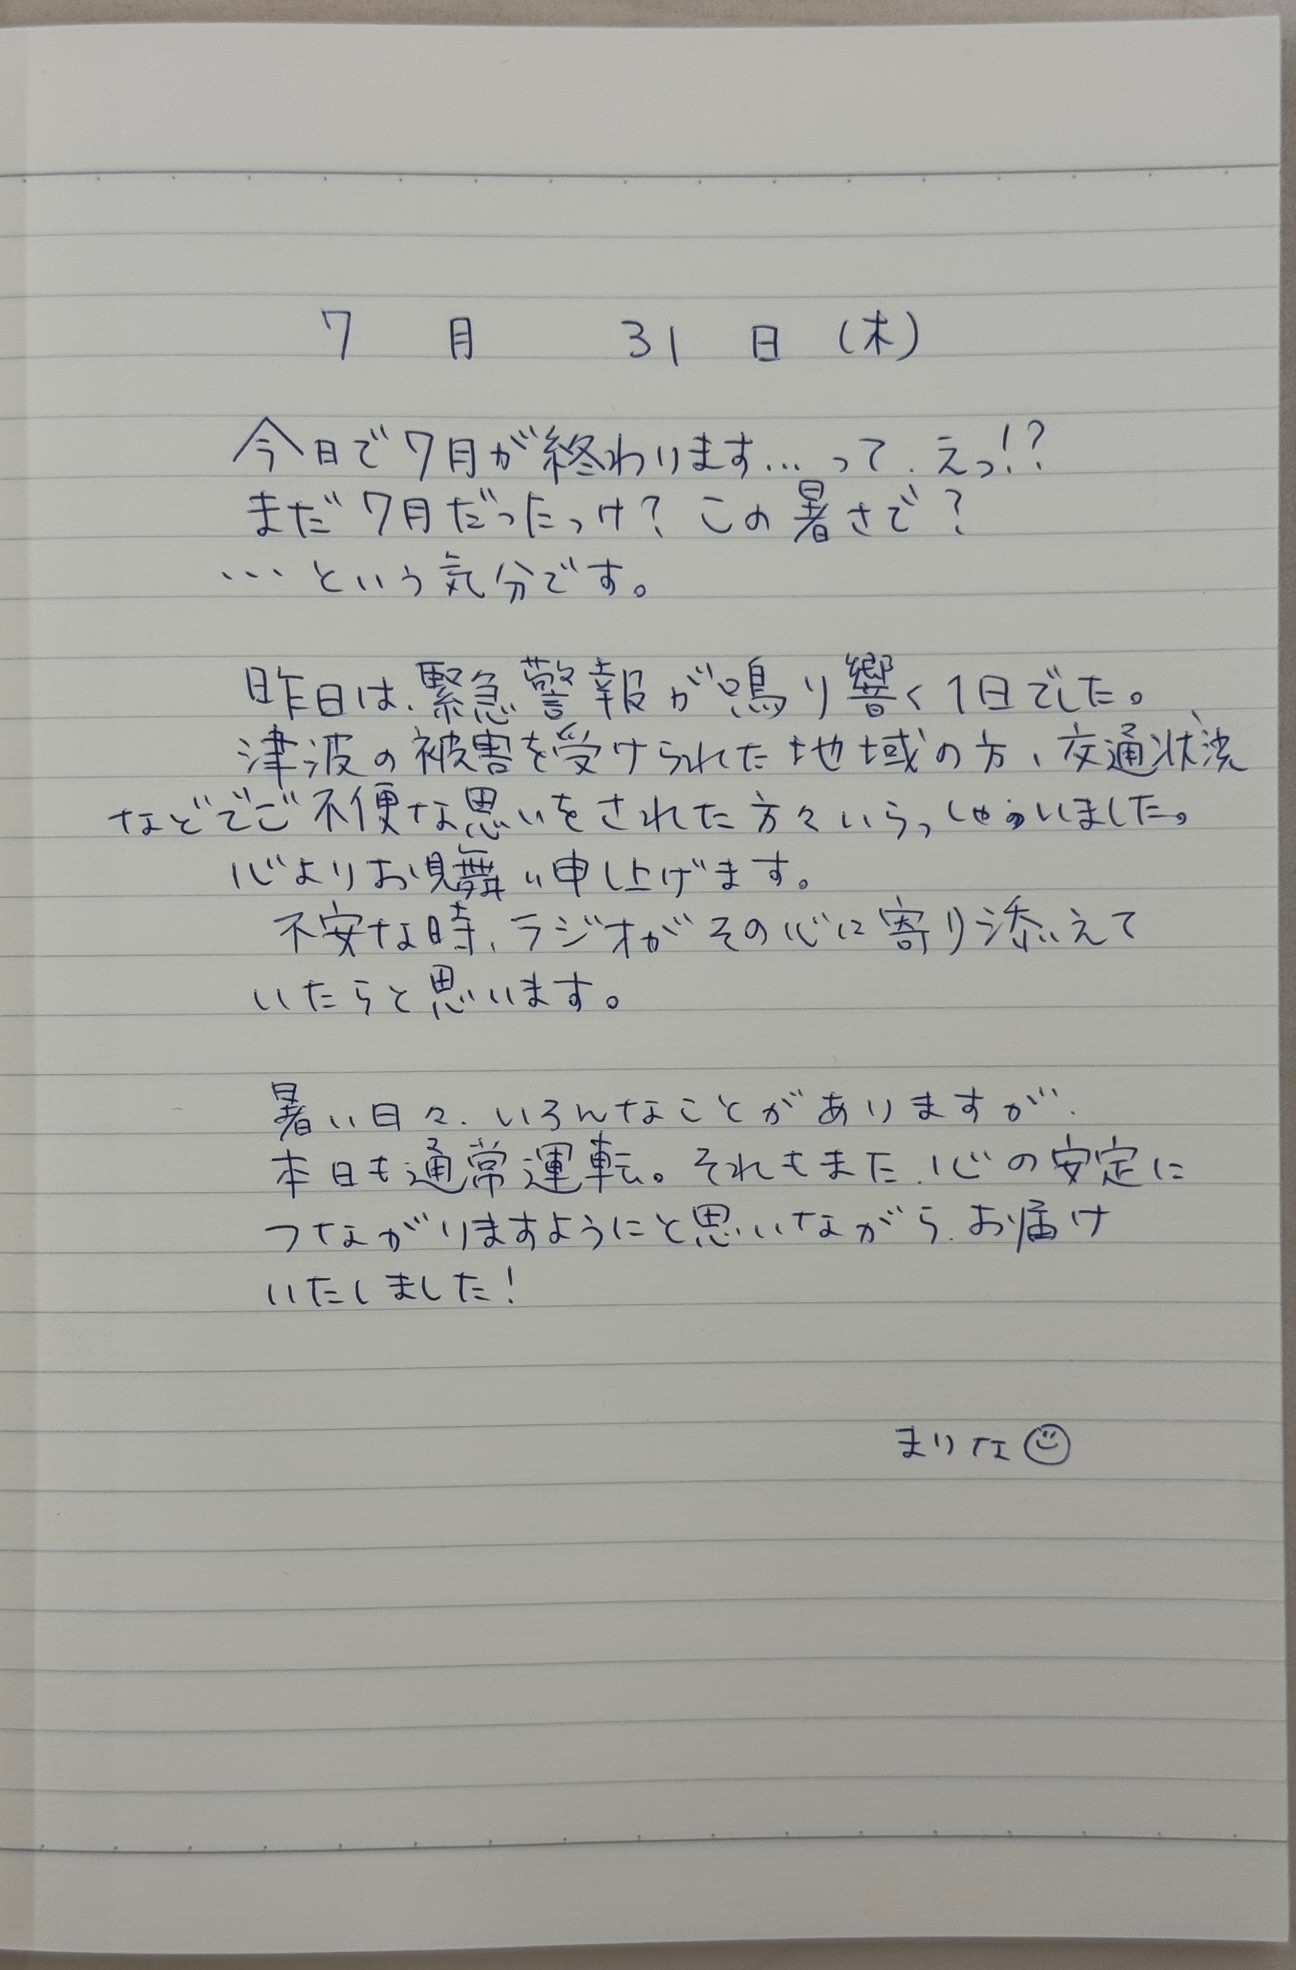 7月 31日(木)
今日で7月が終わります…って、えっ!?
まだ7月だったっけ?この暑さで?
…という気分です。
昨日は、緊急警報が鳴り響く1日でした。
津波の被害を受けられた地域の方、交通状況
などでご不便な思いをされた方々いらっしゃいました。
心よりお見舞い申し上げます。
不安な時、ラジオがその心に寄り添えて
いたらと思います。
暑い日々、いろんなことがありますが、
本日も通常運転。それもまた、心の安定に
つながりますようにと思いながら、お届け
いたしました!
まりな☺